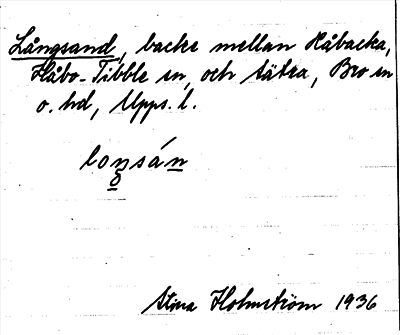 Långsand, backe mellan Håbacka,
Håbo-Tibble sn, och Sätra, Bro sn
o. hd, Upps. l.
Stina Holmström 1936